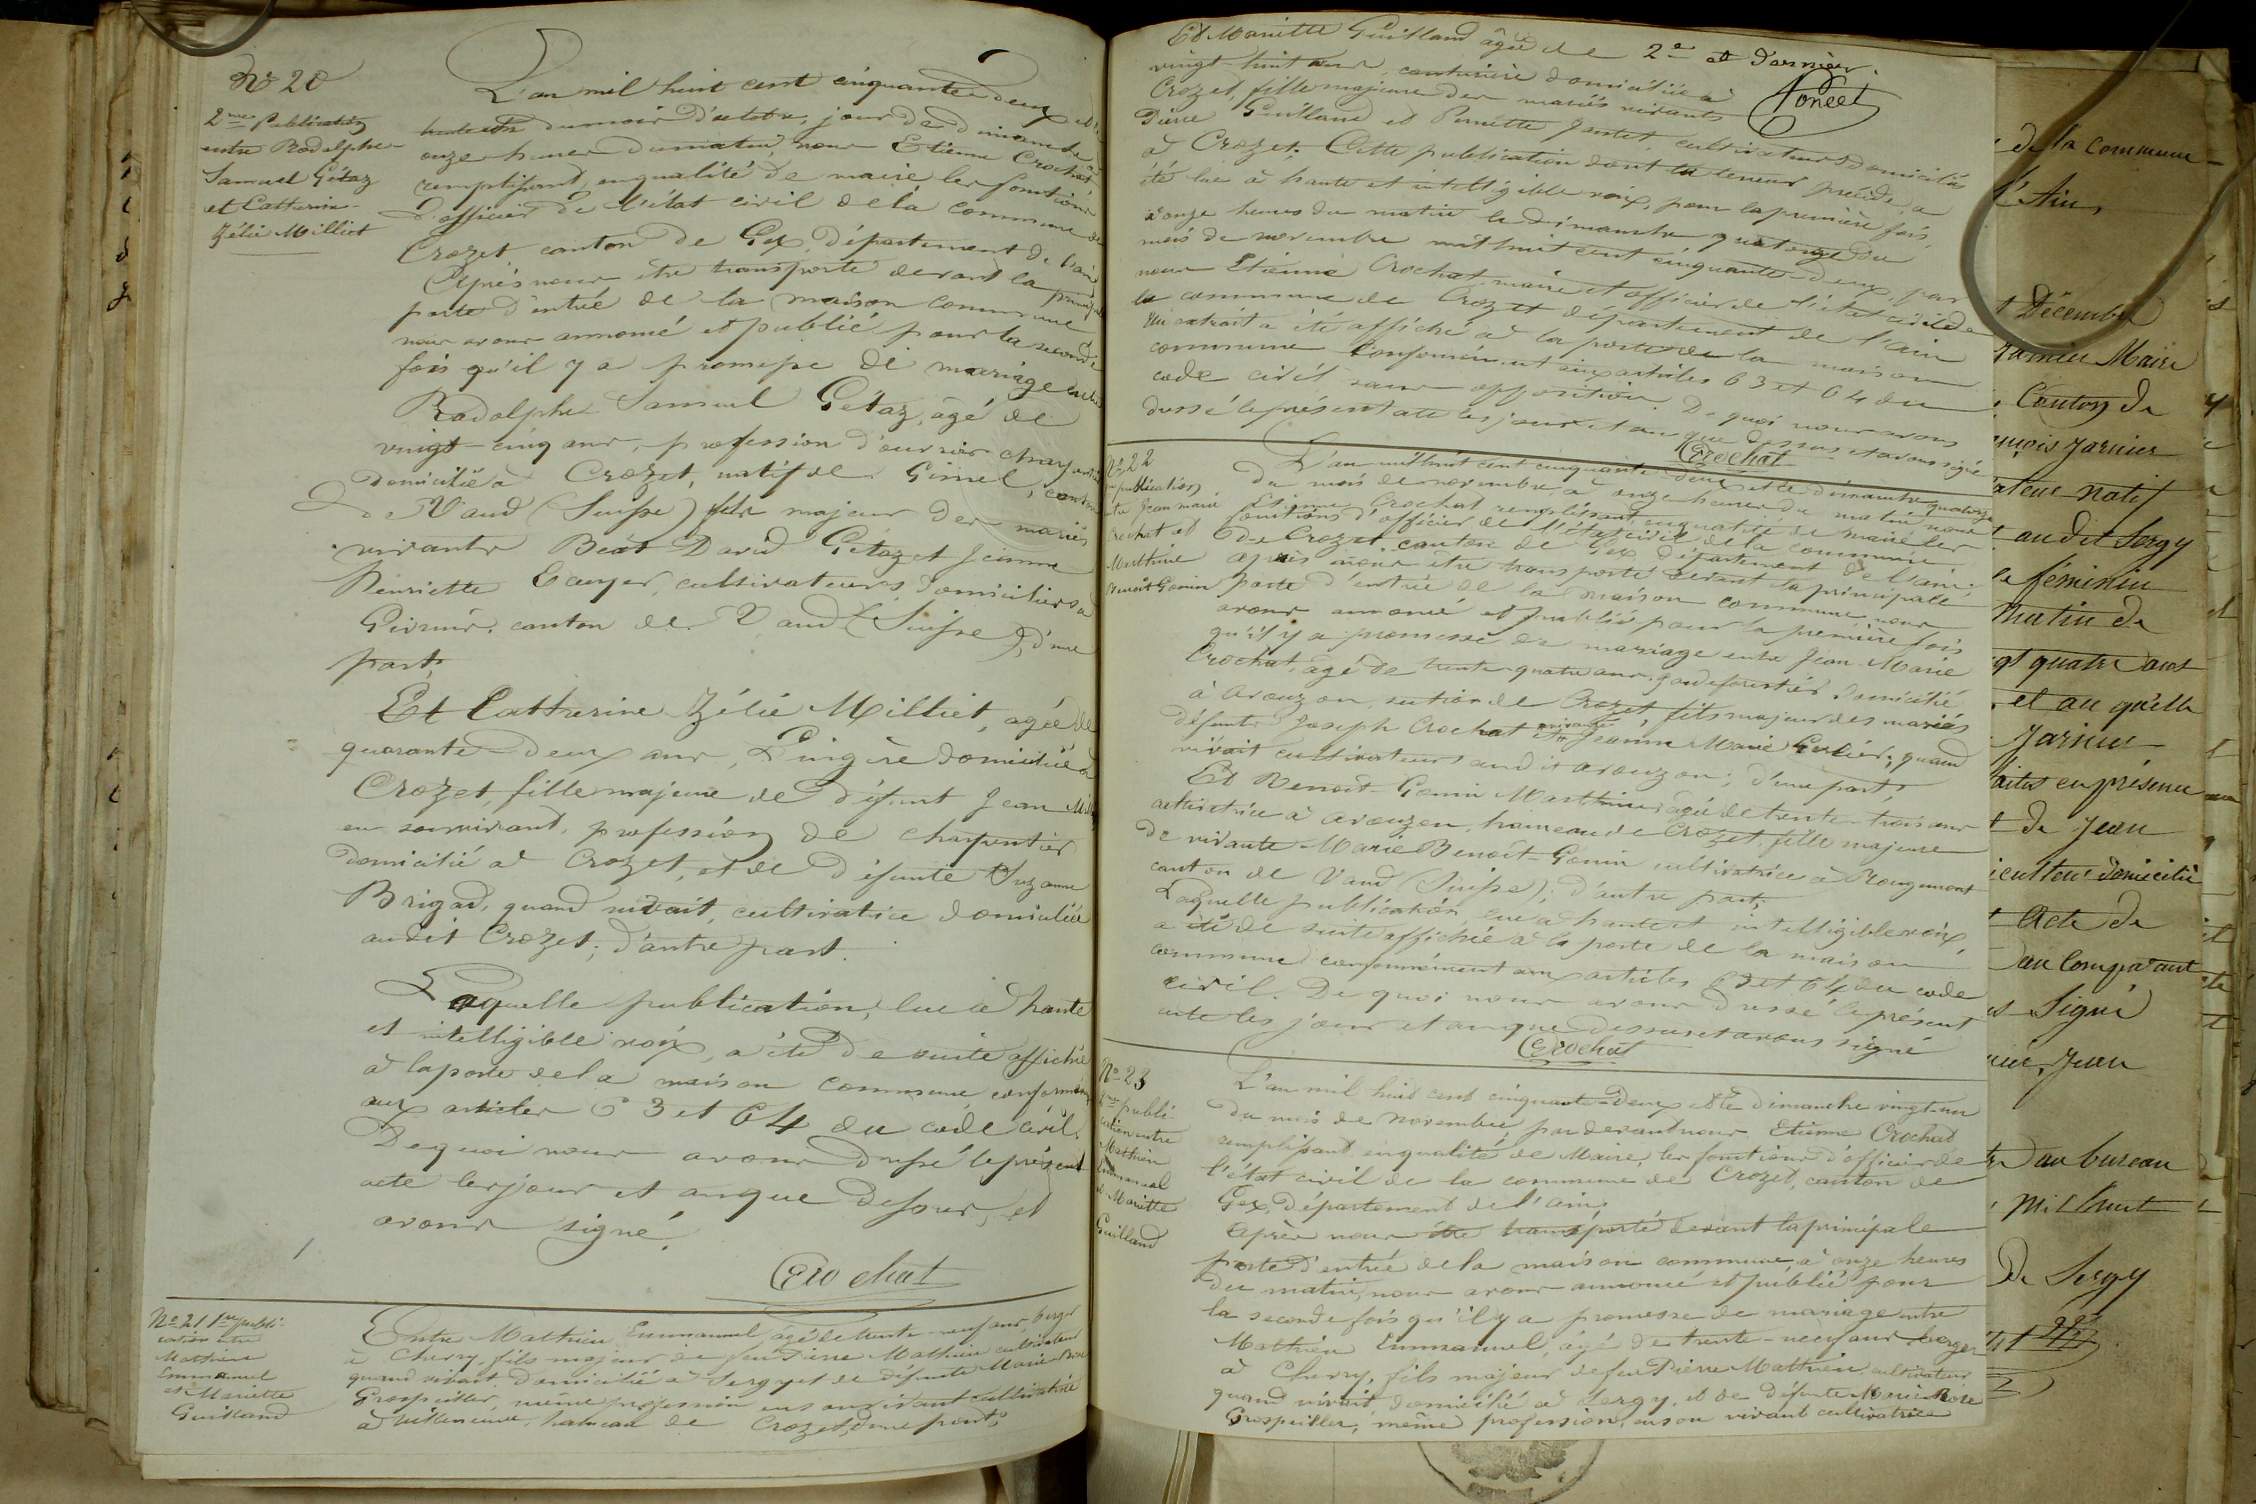 No 20
2me Publication
entre Rodolphe
Samuel Gétaz
et Catherine
Zélie Milliet
L'an mil huit cent cinquante deux et le
du mois d'octobre, jour de dimanche à
onze heures du matin, nous Etienne Crochat
remplissant, en qualité de maire les fonctions
d'officier de l'état civil de la commune de
Crozet canton de Gex, département de l'ain
Après nous être transporté devant la principale
porte d'entrée de la maison commune
nous avons annoncé et publié pour la seconde
fois qu'il y a promesse de mariage entre
Rodolphe Samuel Gétaz, âgé de
vingt-cinq ans, profession d'ouvrier charpentier
domicilié à Crozet, natif de Gimel, canton
de Vaud (Suisse) fils majeur des mariés
vivants Béat David Gétaz et Jeanne
Henriette cultivateurs, domiciliés à
canton de Vaud (Suisse), d'une
part,
Et Catherine Zélie Milliet, agée de
quarante-deux ans, Lingère domiciliée à
Crozet, fille majeure de défunt Jean
en son vivant, profession de charpentier
domicilié à Crozet, et de défunte Suzanne
Brigad, quand vivait, cultivatrice domiciliée
audit Crozet; d'autre part.
Laquelle publication, lue à haute
et intelligible voix, a été de suite affichée
à la porte de la maison commune, conformément
aux articles 63 et 64 du code civil.
De quoi nous avons dressé le présent
acte les jour et an que dessus, et
avons signé.
Crochat
No 21 1re publi-
cation entre
Mathieu
Emmanuel
et Mariette
Guilland
Entre Mathieu Emmanuel, âgé de trente-neuf ans, berger
à Chevry, fils majeur de feu Pierre Mathieu cultivateur
quand vivait domicilié à Sergy et de défunte Marie Rose
Grospeiller, même profession en son vivant cultivatrice
à Villeneuve, hameau de Crozet, d'une part;
Et Mariette Guilland âgée de
2e et dernier.
Poncet
vingt-huit ans, couturière domiciliée à
Crozet, fille majeure des mariés vivants
Pierre Guilland et Pernette Jantet, cultivateurs domiciliés
à Crozet. Cette publication dont la teneur précède, a
été lue à haute et intelligible voix, pour la première fois,
à onze heures du matin le dimanche quatorze du
mois de novembre mil huit cent cinquante-deux, par
nous Etienne Crochat, maire et officier de l'état civil de
la commune de Crozet département de l'ain
Un extrait a été affiché à la porte de la maison
commune conformément aux articles 63 et 64 du
code civil sans opposition. De quoi nous avons
dressé le présent acte les jour et an que dessus et avons signé
Crochat
No 22
publication
Jean marie
Crochat et
Marthine
Benoit Gonin
L'an mil huit cent cinquante deux et le dimanche quatorze
du mois de novembre, à onze heures du matin nous
Etienne Crochat remplissant en qualité de maire les
fonctions d'officier de l'état civil de la commune
de Crozet, canton de Gex département de l'ain.
après nous être transporté devant la principale
porte d'entrée de la maison commune, nous
avons annoncé et publié pour la première fois
qu'il y a promesse de mariage entre Jean Marie
Crochat, âgé de trente-quatre ans, garde forestier domicilié
à avouzon, section de Crozet, fils majeur des mariés
défunt Joseph Crochat et vivante Jeanne Marie quand
vivait cultivateurs audit avouzon; d'une part,
Et Benoit-Gonin Marthine âgée de trente-trois ans
cultivatrice à avouzon, hameau de Crozet, fille majeure
de vivante Marie Benoit-Gonin cultivatrice à Rougemont
canton de Vaud (Suisse); d'autre part;
Laquelle publication, lue à haute et intelligible voix,
a été de suite affichée à la porte de la maison
commune conformément aux articles 63 et 64 du code
civil. De quoi nous avons dressé le présent
acte les jour et an que dessus et avons signé
Crochat
No 23
2me publi-
cation entre
Mathieu
Emmanuel
et Mariette
Guilland
L'an mil huit cent cinquante-deux et le dimanche vingt-un
du mois de novembre, par devant nous Etienne Crochat
remplissant en qualité de Maire, les fonctions d'officier de
l'état civil de la commune de Crozet, canton de
Gex, département de l'ain,
après nous être transporté devant la principale
porte d'entrée de la maison commune, à onze heures
du matin, nous avons annoncé et publié pour
la seconde fois qu'il y a promesse de mariage entre
Mathieu Emmanuel, âgé de trente-neuf ans berger
à Chevry, fils majeur de feu Pierre Mathieu, cultivateur
quand vivait, domicilié à Sergy, et de défunte Marie Rose
Grospeiller, même profession, en son vivant cultivatrice
de la commune
l'Ain,
Décembre
Jarnier Maire
Canton de
Jarnier
natif
audit Sergy
féminin
matin de
quatre ans
et au qu'elle
Jarnier
en présence
de Jean
domicilié
Acte de
au comparant
Signé
Jean
au bureau
mil huit
de Sergy